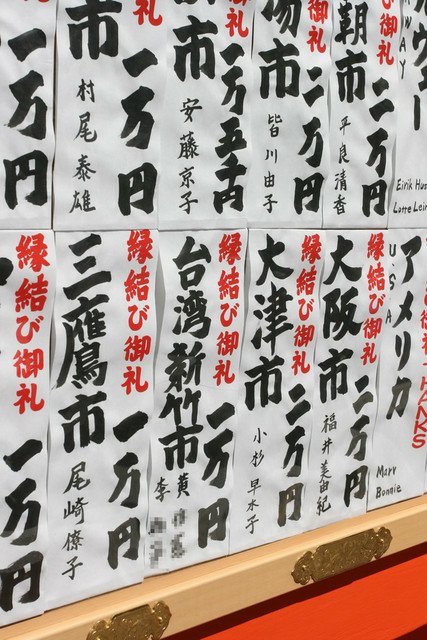 WAY
Eirik Hus
Lotte Lein
御礼
市
二万円
平良清香
御礼
市
二万円
皆川由子
御礼
市
一万五千円
安藤京子
礼
市
一万円
村尾泰雄
一万円
THANKS
アメリカ
U.S.A
Marr
Bonnie
縁結び御礼
大阪市
二万円
福井美由紀
縁結び御礼
大津市
二万円
小杉早木子
縁結び御礼
台湾新竹市
一万円
黄
李
縁結び御礼
三鷹市
一万円
尾崎僚子
縁結び御礼
一万円